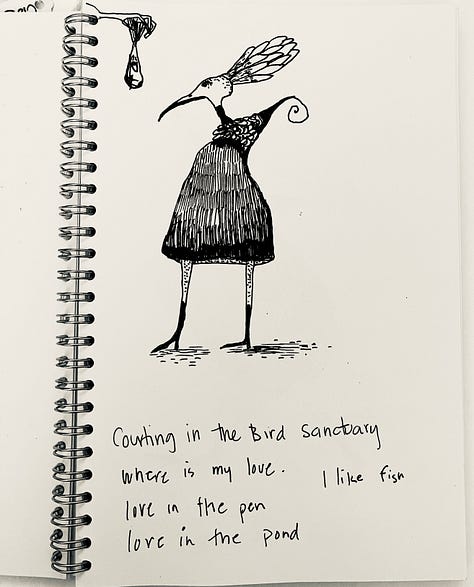 Courting in the Bird Sanctuary
where is my love.
I like fish
love in the pen
love in the pond